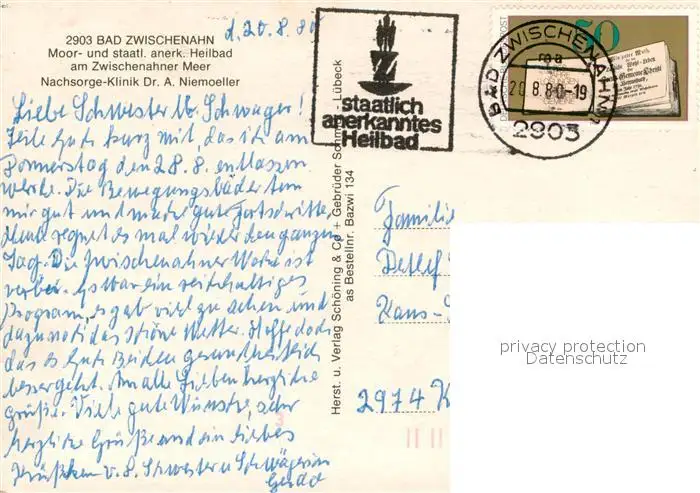 2903 BAD ZWISCHENAHN
Moor- und staatl. anerk. Heilbad
am Zwischenahner Meer
Nachsorge-Klinik Dr. A. Niemoeller
d. 20.8.80
Liebe Schwester u. Schwager!
Teile Euch kurz mit, das ich am
Donnerstag den 28.8. entlassen
werde. Die Bewegungsbäder tun
mir gut und mache gute Fortschritte,
Heute regnet es mal wieder den ganzen
Tag. Die Zwischenahner Woche ist
vorbei. Es war ein reichhaltiges
Program, es gab viel zu sehen und
dazu noch das schöne Wetter. Hoffe doch
das es Euch Beiden gesundheitlich
besser geht. An alle Lieben herzliche
Grüße. Viele gute Wünsche, sehr
herzliche Grüße und ein liebes
Küßchen v. 8. Schwester u Schwägerin
Gerda
Herst. u. Verlag Schöning & Co + Gebrüder Schmidt-Lübeck
as Bestellnr. Bazwi 134
staatlich
anerkanntes
Heilbad
BAD ZWISCHENAHN
ma
20.8.80-19
2903
50
Familie
Detlef
Hans-
2974 K
privacy protection
Datenschutz